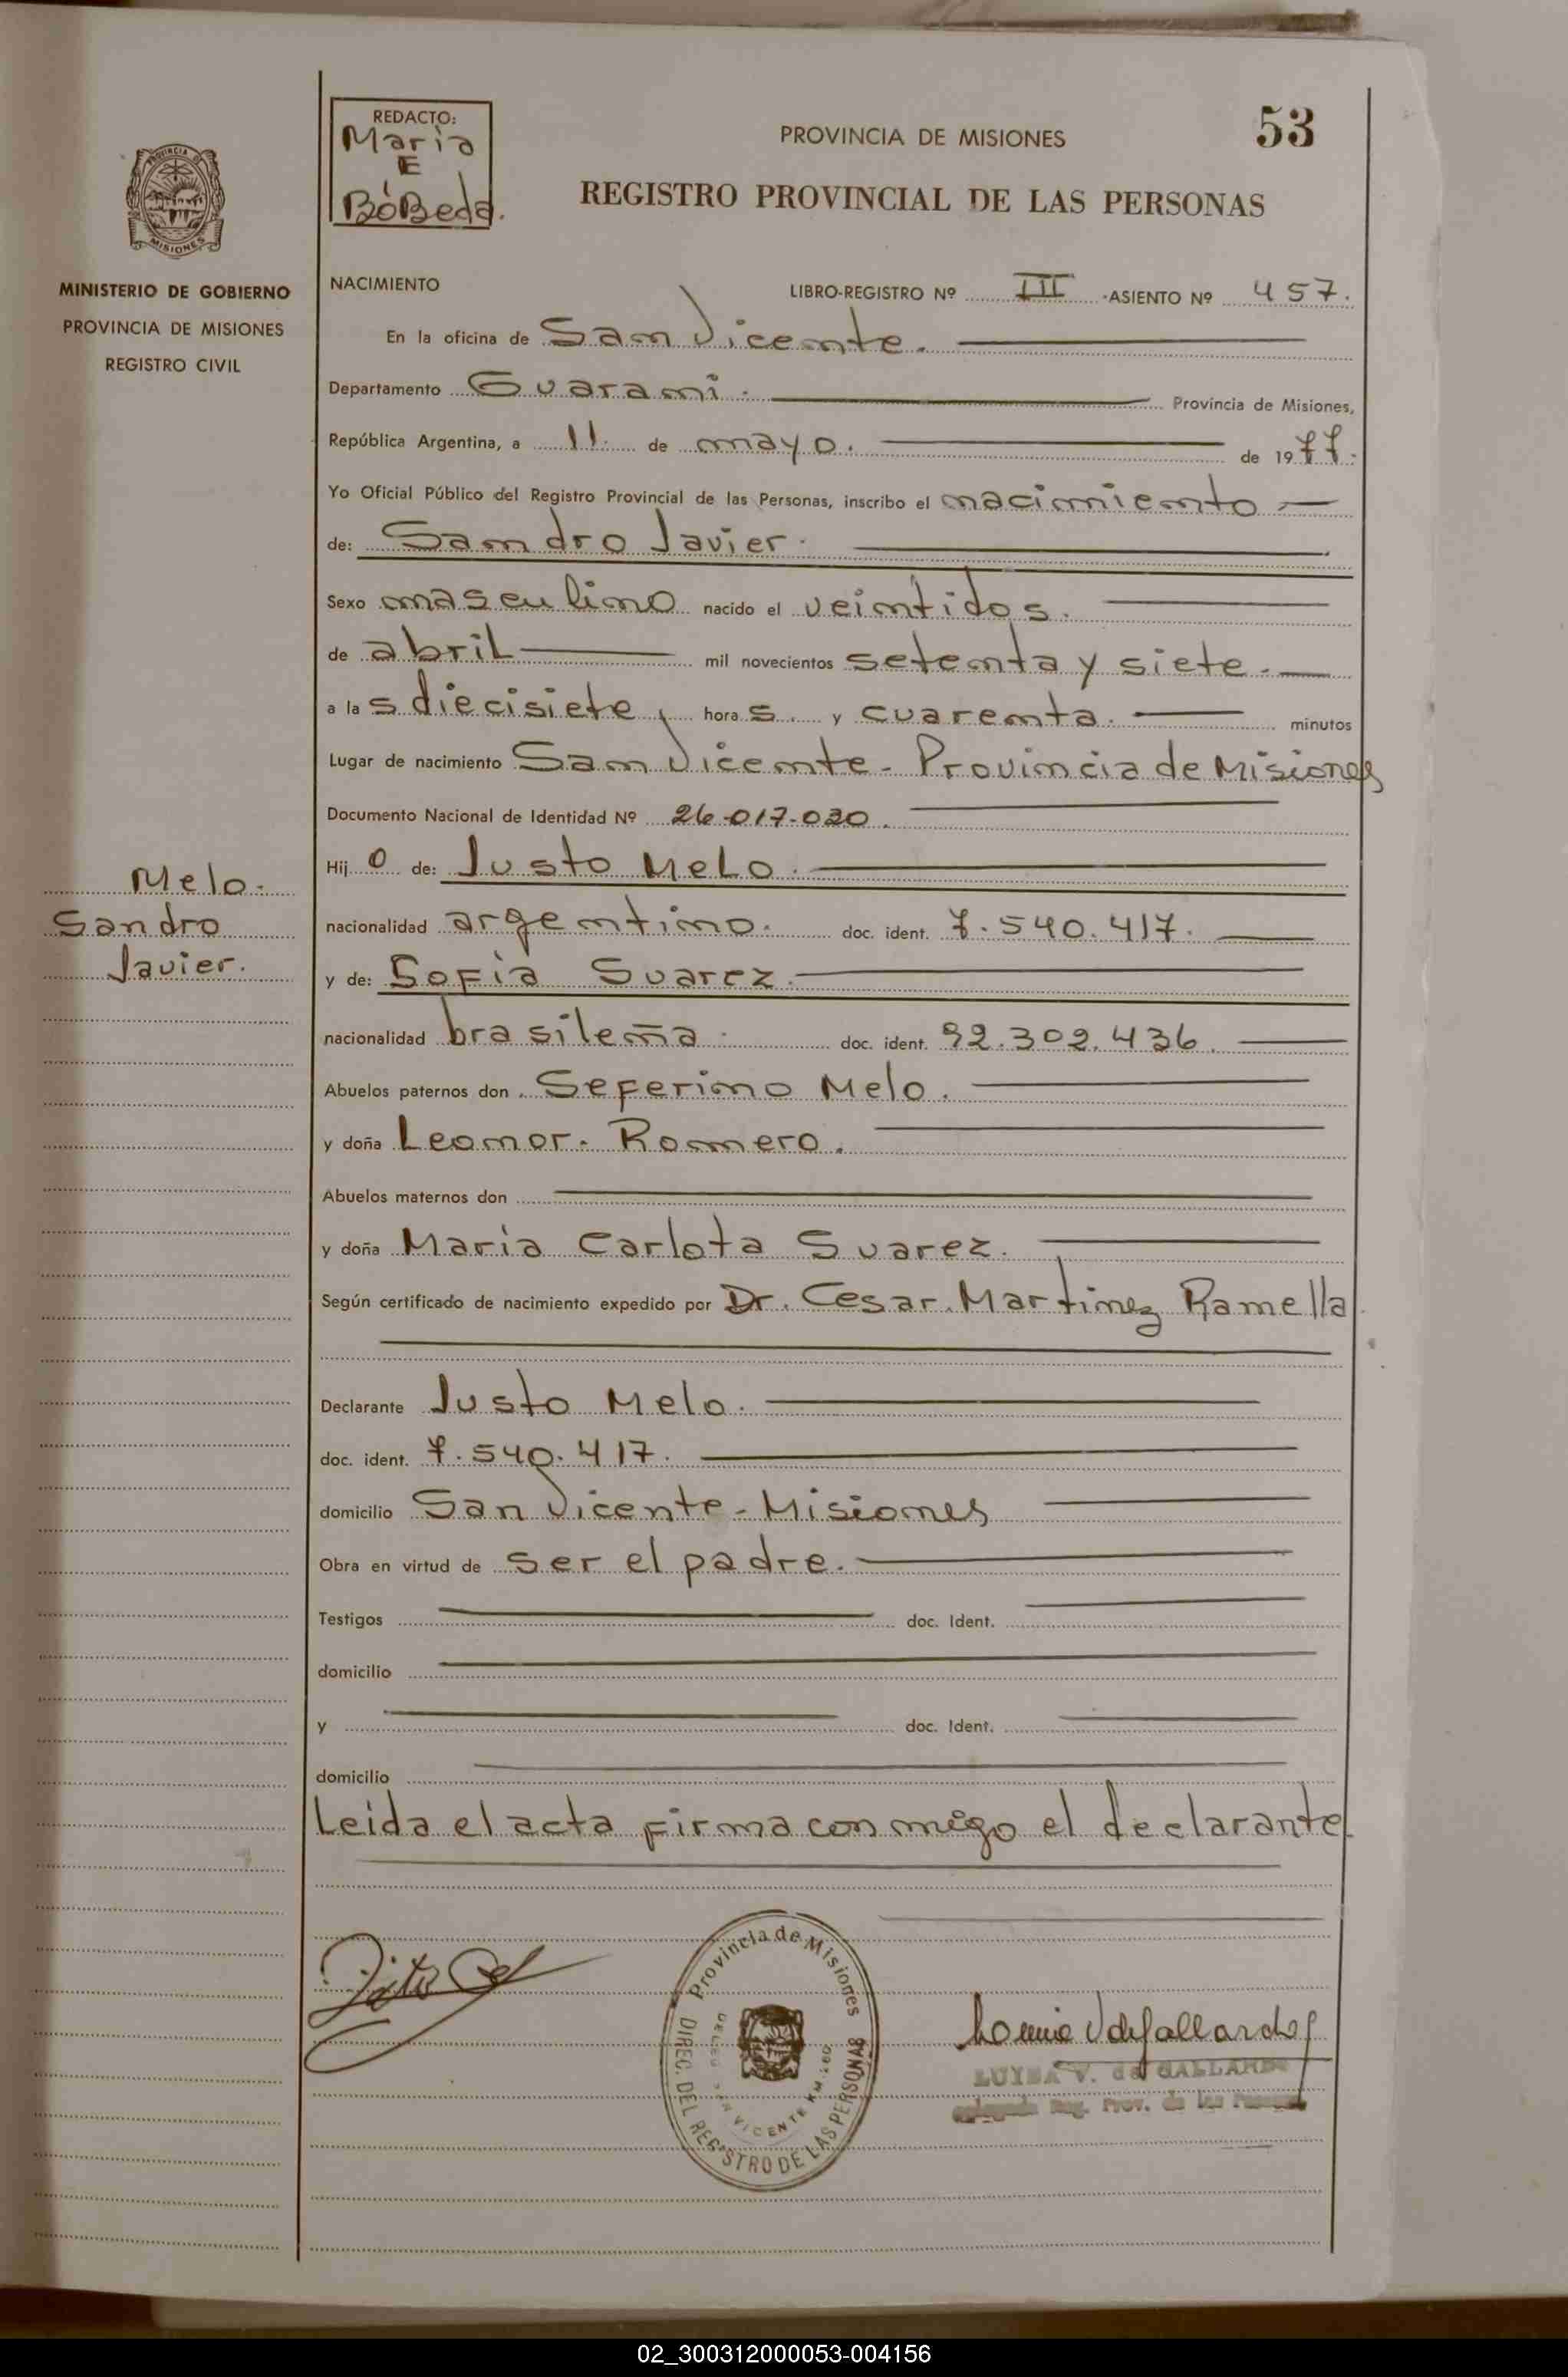 REDACTO:
Maria
E
BóBeda.
PROVINCIA DE MISIONES
53
REGISTRO PROVINCIAL DE LAS PERSONAS
PROVINCIA DE
MISIONES
MINISTERIO DE GOBIERNO
PROVINCIA DE MISIONES
REGISTRO CIVIL
NACIMIENTO
LIBRO-REGISTRO Nº III ASIENTO Nº 457.
En la oficina de San Vicente.
Departamento Guarani. Provincia de Misiones,
República Argentina, a 11 de mayo. de 1977.
Yo Oficial Público del Registro Provincial de las Personas, inscribo el nacimiento
de: Sandro Javier.
Sexo masculino nacido el veintidos.
de abril mil novecientos setenta y siete.
a las diecisiete, horas. y cuarenta. minutos
Lugar de nacimiento San Vicente - Provincia de Misiones
Documento Nacional de Identidad Nº 26.017.020.
Hijo de: Justo Melo.
Melo.
Sandro
Javier.
nacionalidad argentino. doc. ident. 7.540.417.
y de: Sofia Suarez.
nacionalidad brasileña. doc. ident. 92.302.436.
Abuelos paternos don Seferino Melo.
y doña Leonor. Romero.
Abuelos maternos don
y doña Maria Carlota Suarez.
Según certificado de nacimiento expedido por Dr. Cesar. Martinez Ramella
Declarante Justo Melo.
doc. ident. 7.540.417.
domicilio San Vicente - Misiones
Obra en virtud de ser el padre.
Testigos doc. Ident.
domicilio
y doc. Ident.
domicilio
Leida el acta firma con migo el declarante.
Provincia de Misiones
DIREC. DEL REGISTRO DE LAS PERSONAS
VICENTE KM.
LUISA V. de GALLARDO
Reg. Prov. de las
02_300312000053-004156